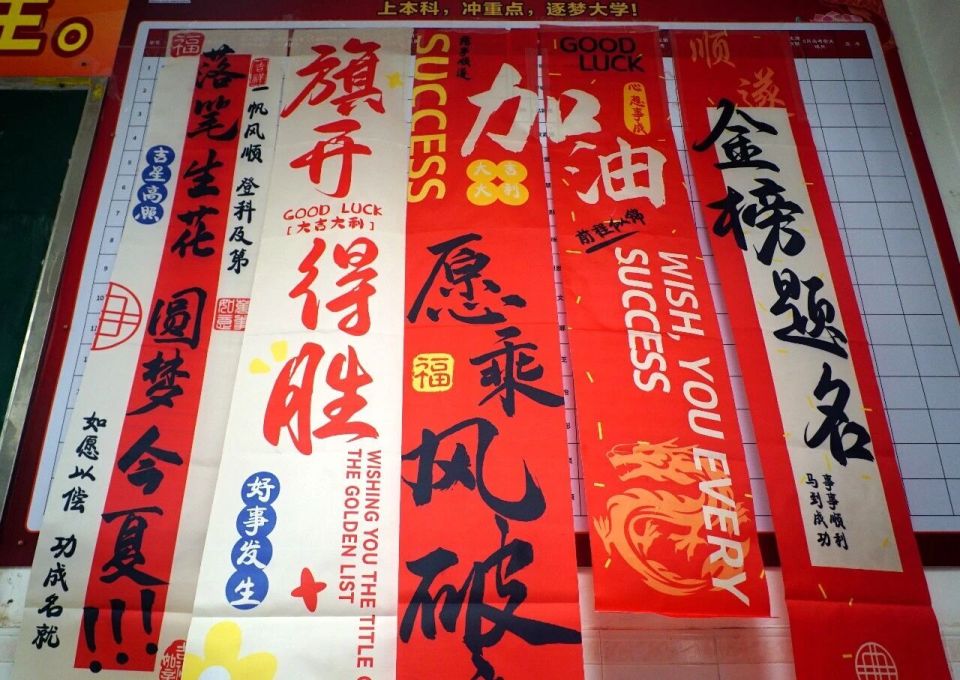 上本科，冲重点，逐梦大学！
福
落笔生花
圆梦今夏!!!
吉祥
一帆风顺 登科及第
吉星高照
如愿以偿 功成名就
旗开得胜
GOOD LUCK
[大吉大利]
好事发生
WISHING YOU THE TITLE O
THE GOLDEN LIST
SUCCESS
加油
大吉
大利
愿乘风破
福
GOOD
LUCK
心想事成
前程似锦
WISH, YOU EVERY
SUCCESS
顺遂
金榜题名
事事顺利
马到成功